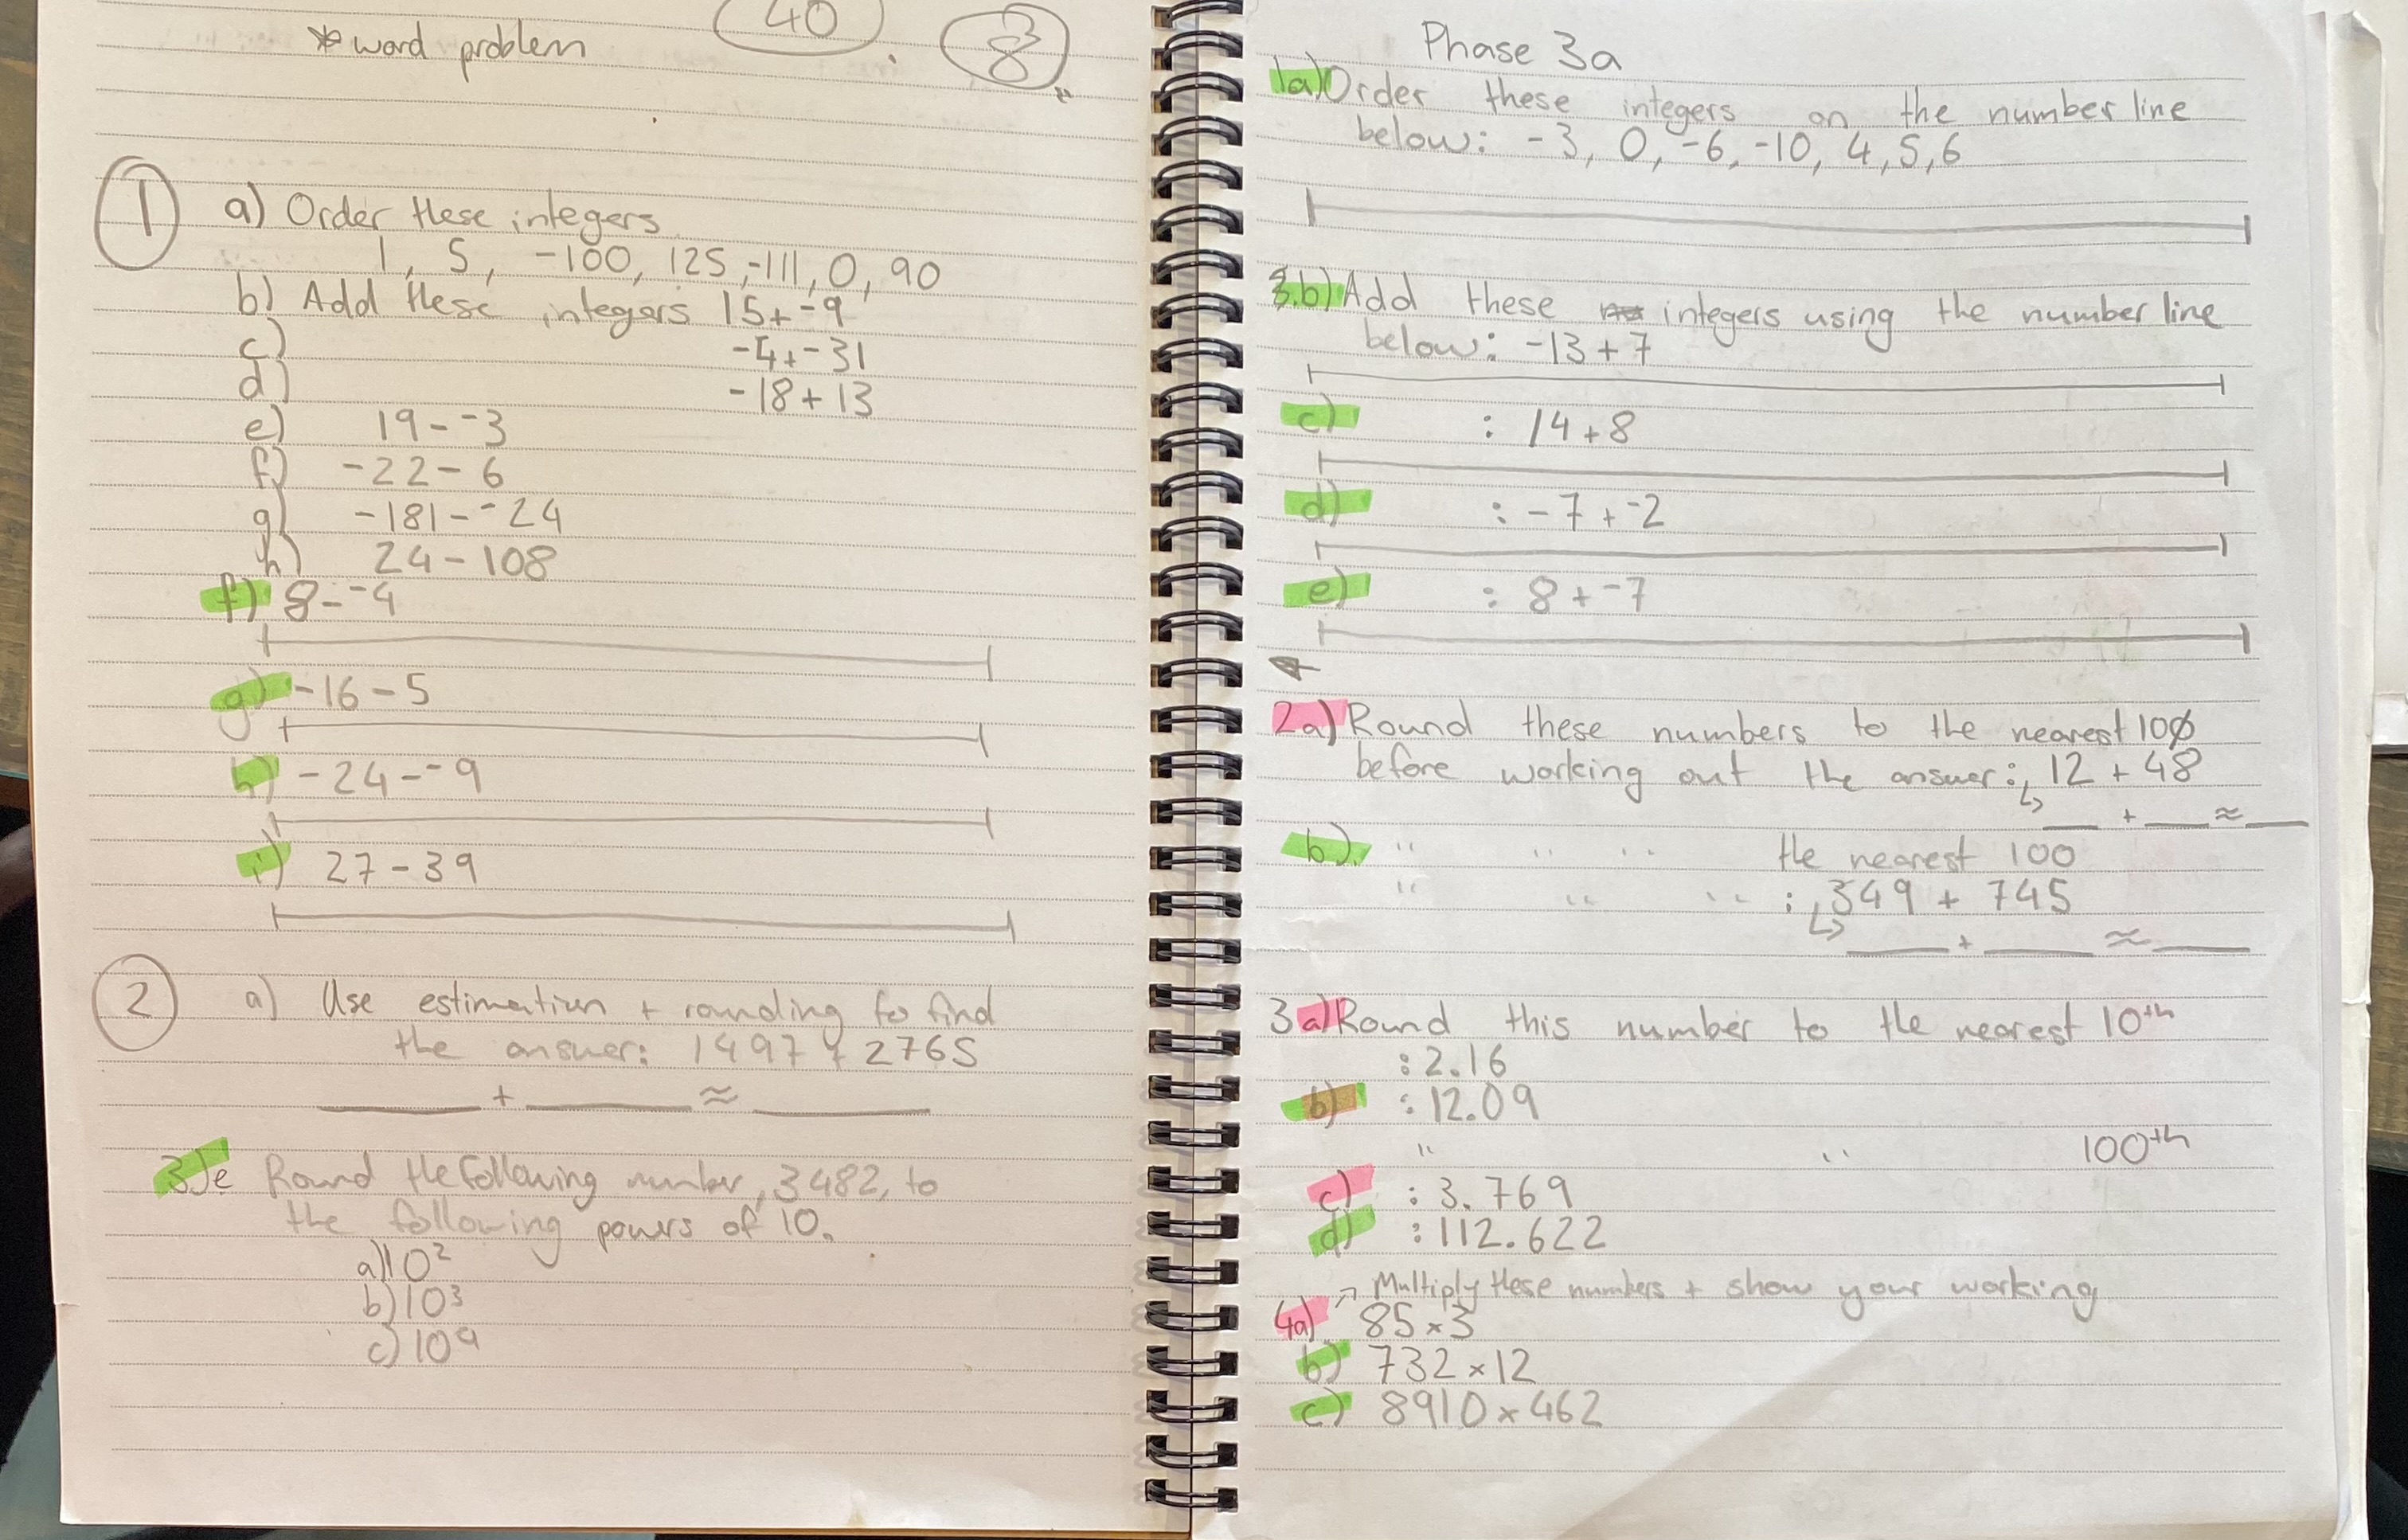 * word problem
40
8
1 a) Order these integers
1, 5, -100, 125, -111, 0, 90
b) Add these integers 15+-9
c) -4+-31
d) -18+13
e) 19--3
f) -22-6
g) -181--24
h) 24-108
f) 8--4
g) -16-5
h) -24--9
i) 27-39
2 a) Use estimation + rounding to find
the answer: 1497 + 2765
____ + ____ ≈ ____
3)e Round the following number, 3482, to
the following powers of 10.
a) 10²
b) 10³
c) 10⁹
Phase 3a
1a) Order these integers on the number line
below: -3, 0, -6, -10, 4, 5, 6
b) Add these integers using the number line
below: -13+7
c) : 14+8
d) : -7+-2
e) : 8+-7
2a) Round these numbers to the nearest 10
before working out the answer: 12 + 48
↳ ____ + ____ ≈ ____
b) " " " the nearest 100
" " " : 349 + 745
↳ ____ + ____ ≈ ____
3a) Round this number to the nearest 10th
: 2.16
b) : 12.09
" " 100th
c) : 3.769
d) : 112.622
→ Multiply these numbers + show your working
4a) 85×3
b) 732×12
c) 8910×462